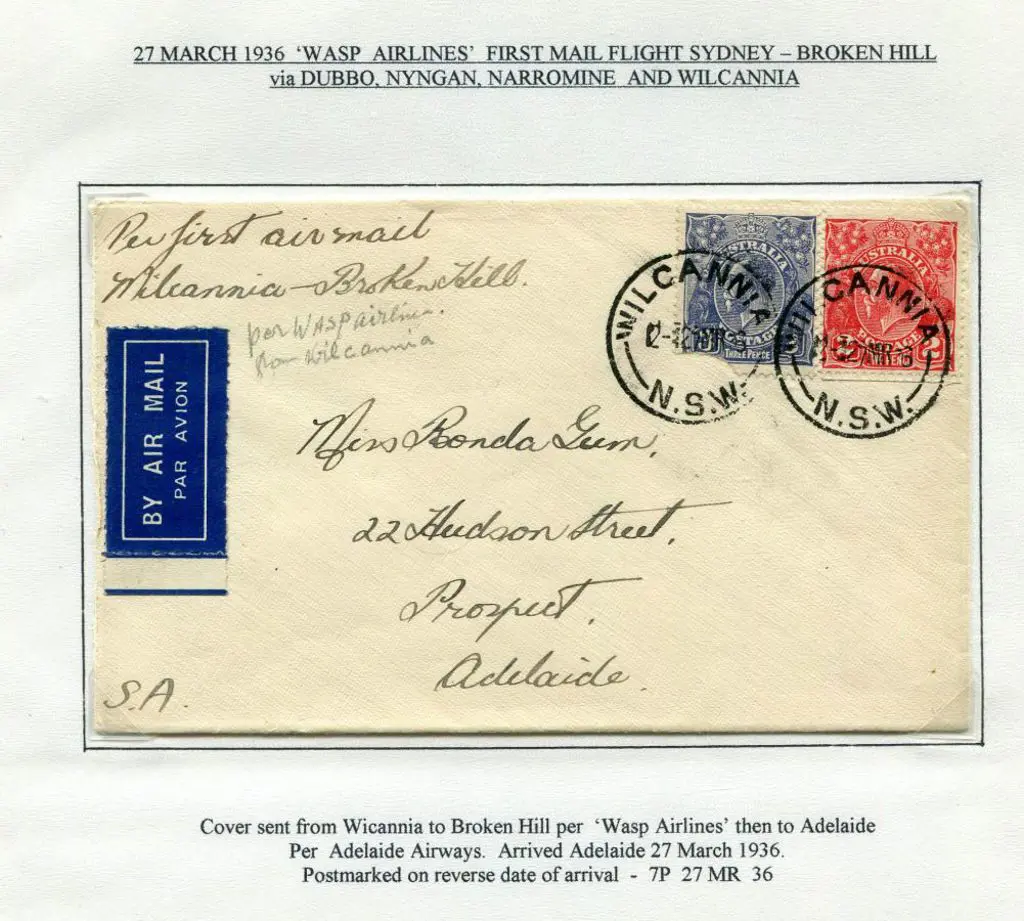 27 MARCH 1936 ‘WASP AIRLINES’ FIRST MAIL FLIGHT SYDNEY – BROKEN HILL
via DUBBO, NYNGAN, NARROMINE AND WILCANNIA
Per first air mail
Wilcannia – Broken Hill.
per WASP airlines.
from Wilcannia
BY AIR MAIL
PAR AVION
AUSTRALIA
POSTAGE
THREE PENCE
AUSTRALIA
POSTAGE
WILCANNIA
N.S.W.
WILCANNIA
N.S.W.
Miss Ronda Gum,
22 Hudson Street,
Prospect,
Adelaide.
S.A.
Cover sent from Wicannia to Broken Hill per ‘Wasp Airlines’ then to Adelaide
Per Adelaide Airways. Arrived Adelaide 27 March 1936.
Postmarked on reverse date of arrival - 7P 27 MR 36